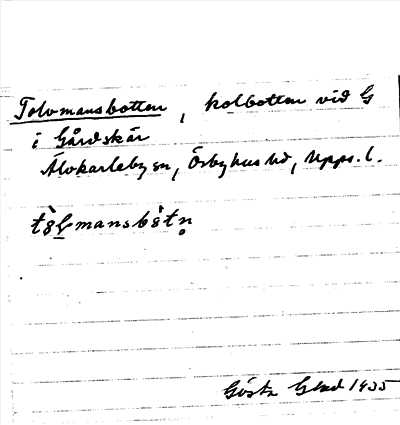 Tolvmansbotten, kolbotten vid G
i Gårdskär
Älvkarleby sn, Örbyhus hd, Upps. l.
Gösta Glad 1935